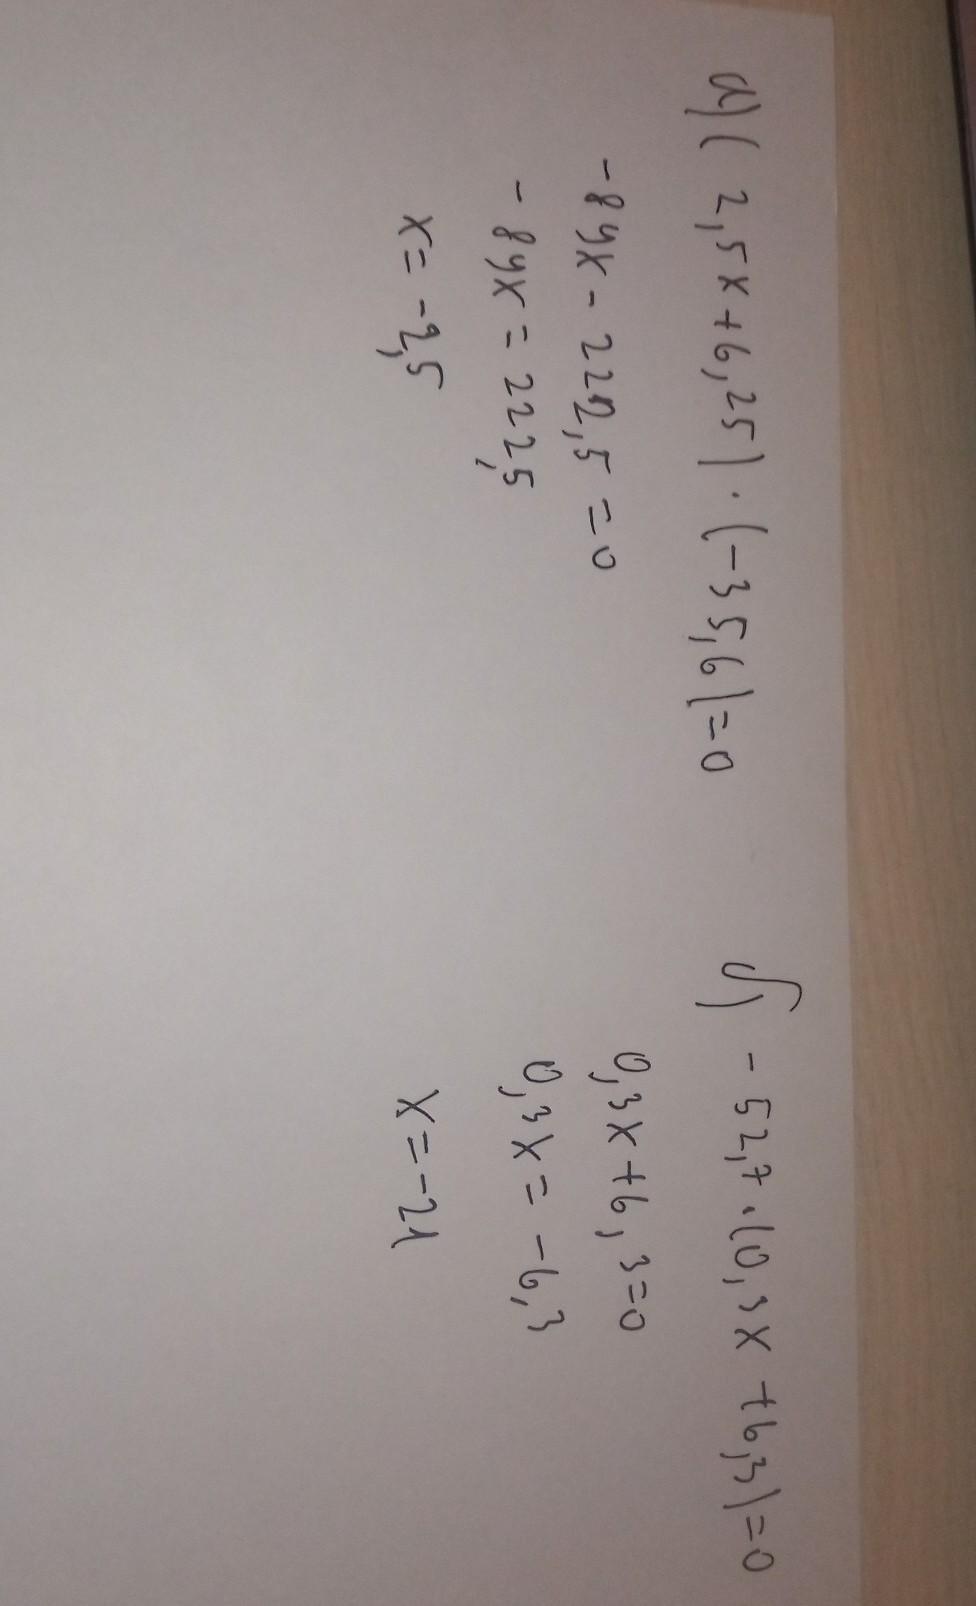 а) (2,5x+6,25)·(-35,6)=0
-89x-222,5=0
-89x=222,5
x=-2,5
б) -52,7·(0,3x+6,3)=0
0,3x+6,3=0
0,3x=-6,3
x=-21